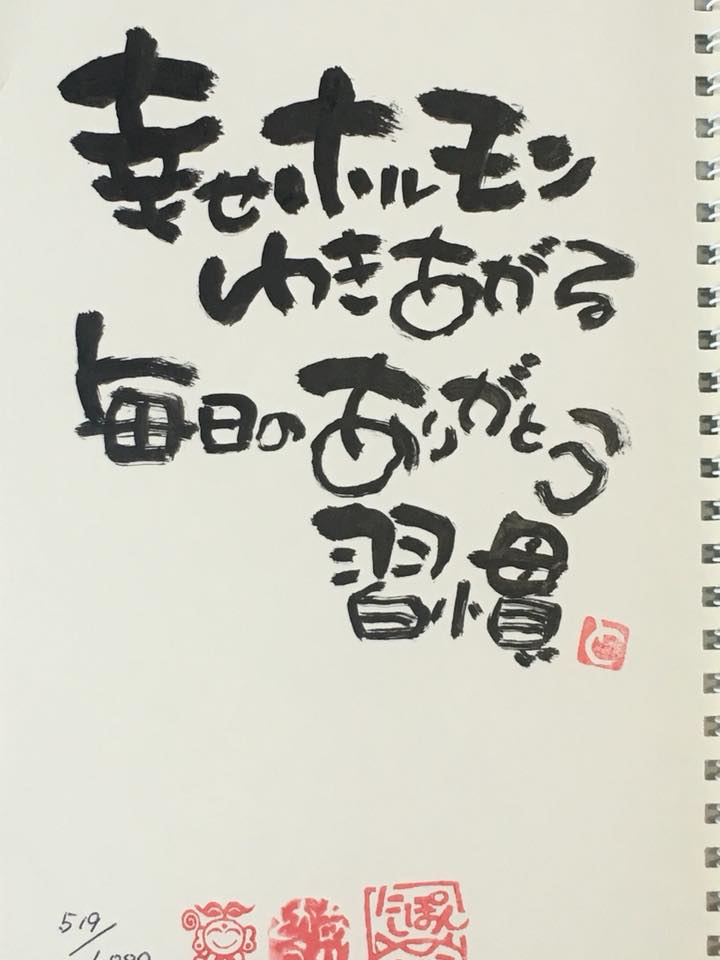 幸せホルモン
わきあがる
毎日のありがとう
習慣
519/
にっぽん